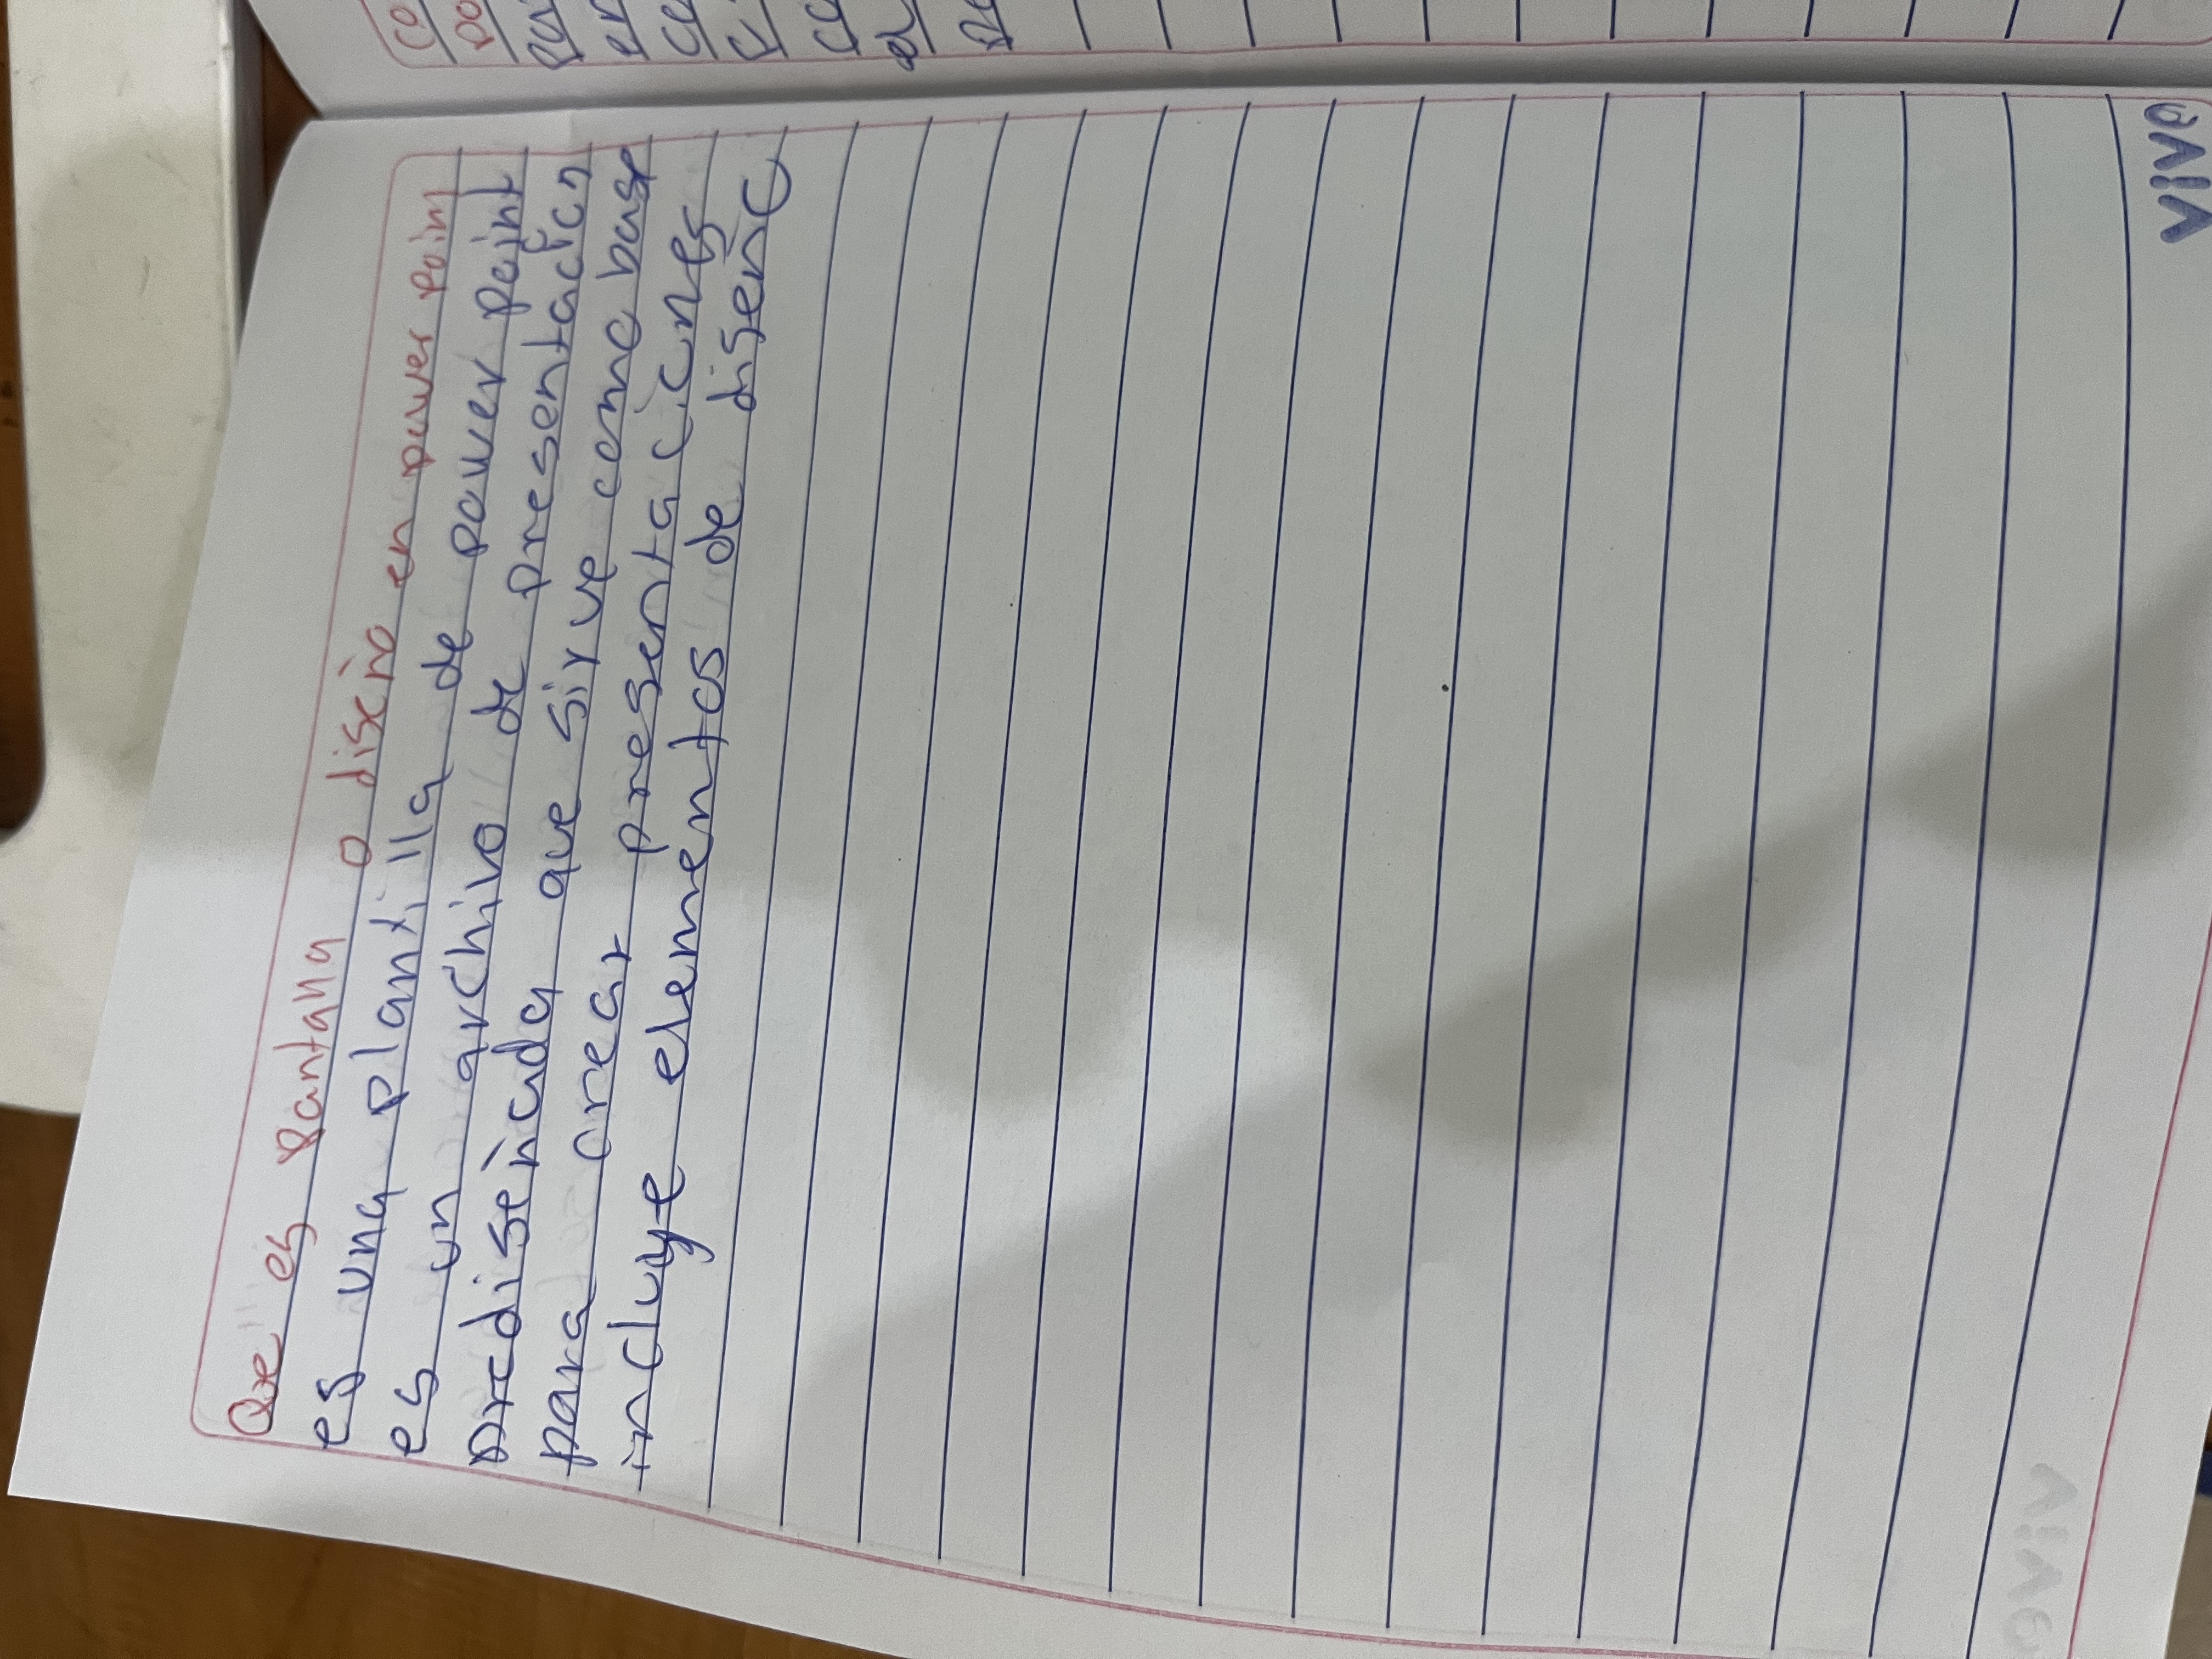 Que es Pantalla o diseño en power point
es una plantilla de power point
es un archivo de presentación
prediseñada que sirve como base
para crear presentaciones
incluye elementos de diseño
VIVA